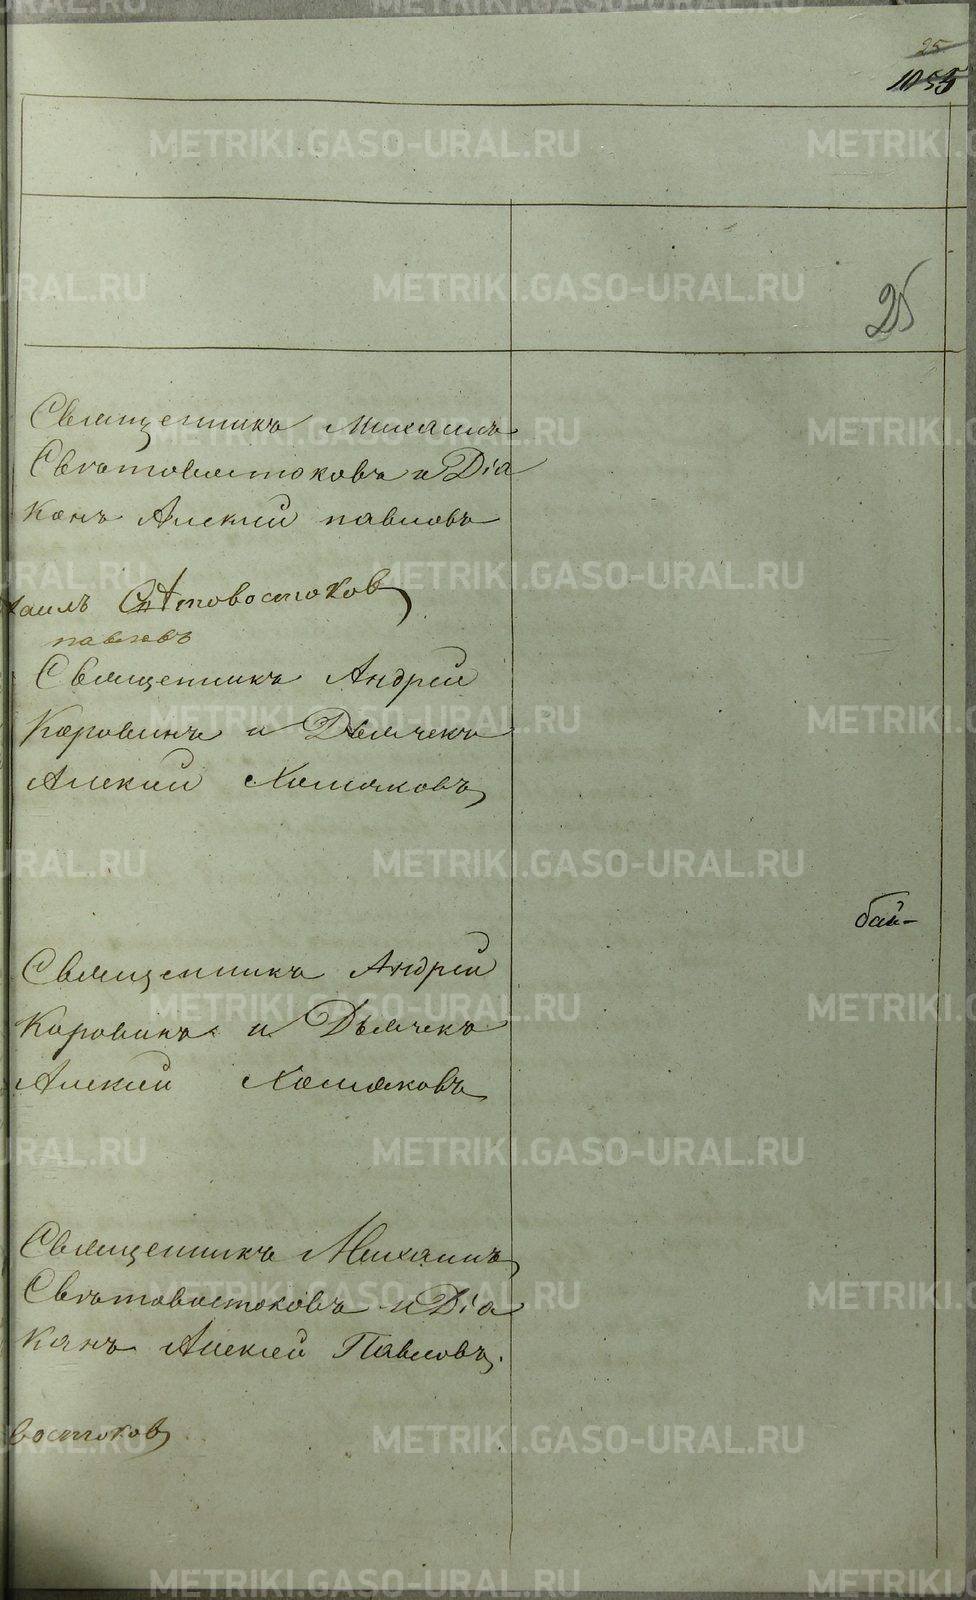 25
1055
25
Священникъ Михаилъ
Святовостоковъ и Дiа
конъ Алексiй павловъ
хаилъ Святовостоковъ
павловъ
Священникъ Андрей
Коровинъ и Дьячекъ
Алексiй Хомяковъ
бай-
Священникъ Андрей
Коровинъ и Дьячекъ
Алексiй Хомяковъ
Священникъ Михаилъ
Святовостоковъ и Дiа
конъ Алексей Павловъ.
востоковъ
METRIKI.GASO-URAL.RU